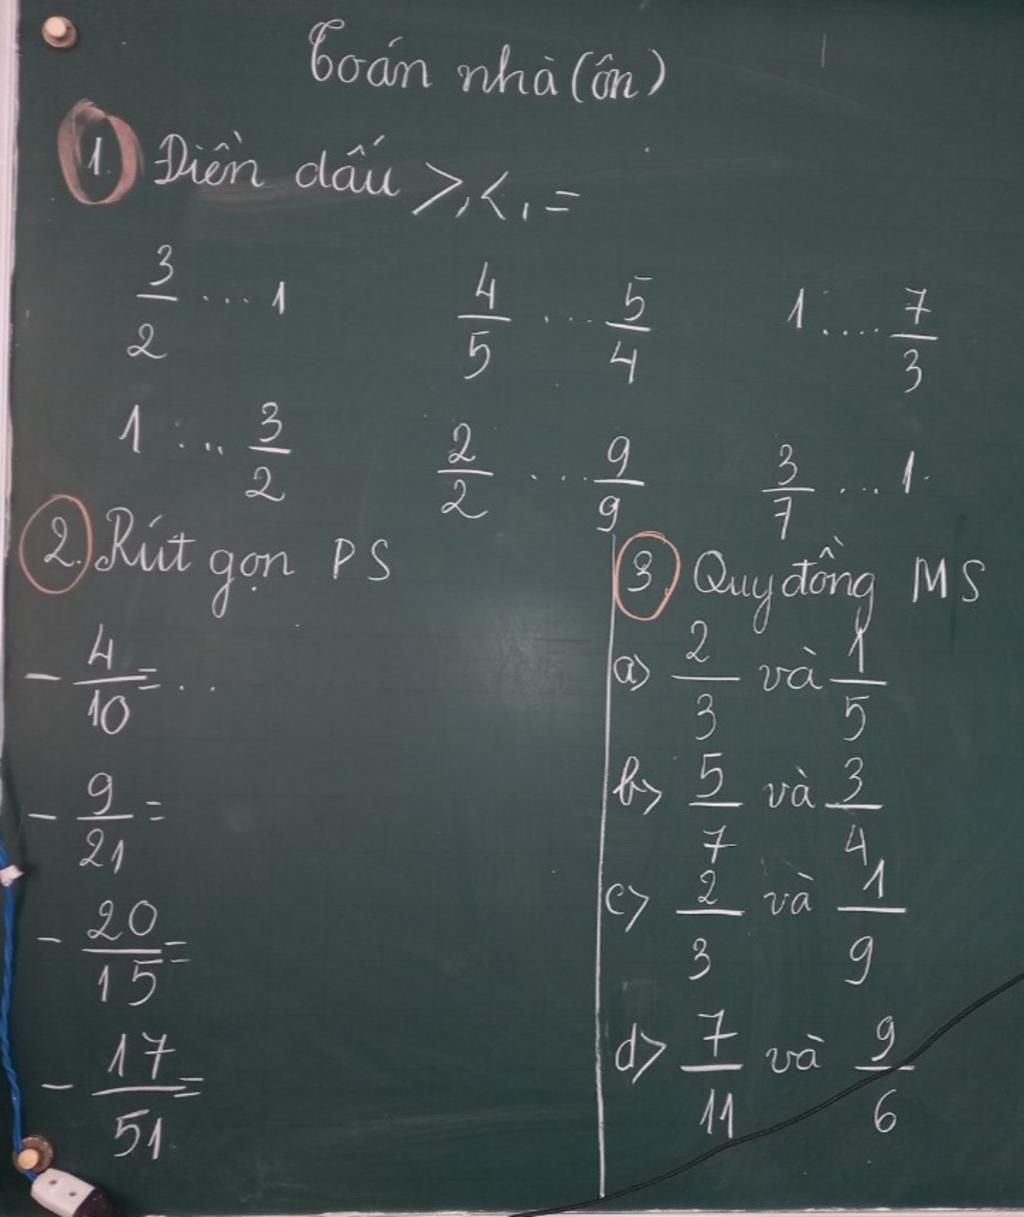 Toán nhà (ôn)
1. Điền dấu >, <, =
3/2 .... 1    4/5 ... 5/4    1 .... 7/3
1 .... 3/2    2/2 ... 9/9    3/7 ... 1
2. Rút gọn PS
- 4/10 = ...
- 9/21 =
- 20/15 =
- 17/51 =
3. Quy đồng MS
a) 2/3 và 1/5
b) 5/7 và 3/4
c) 2/3 và 1/9
d) 7/11 và 9/6